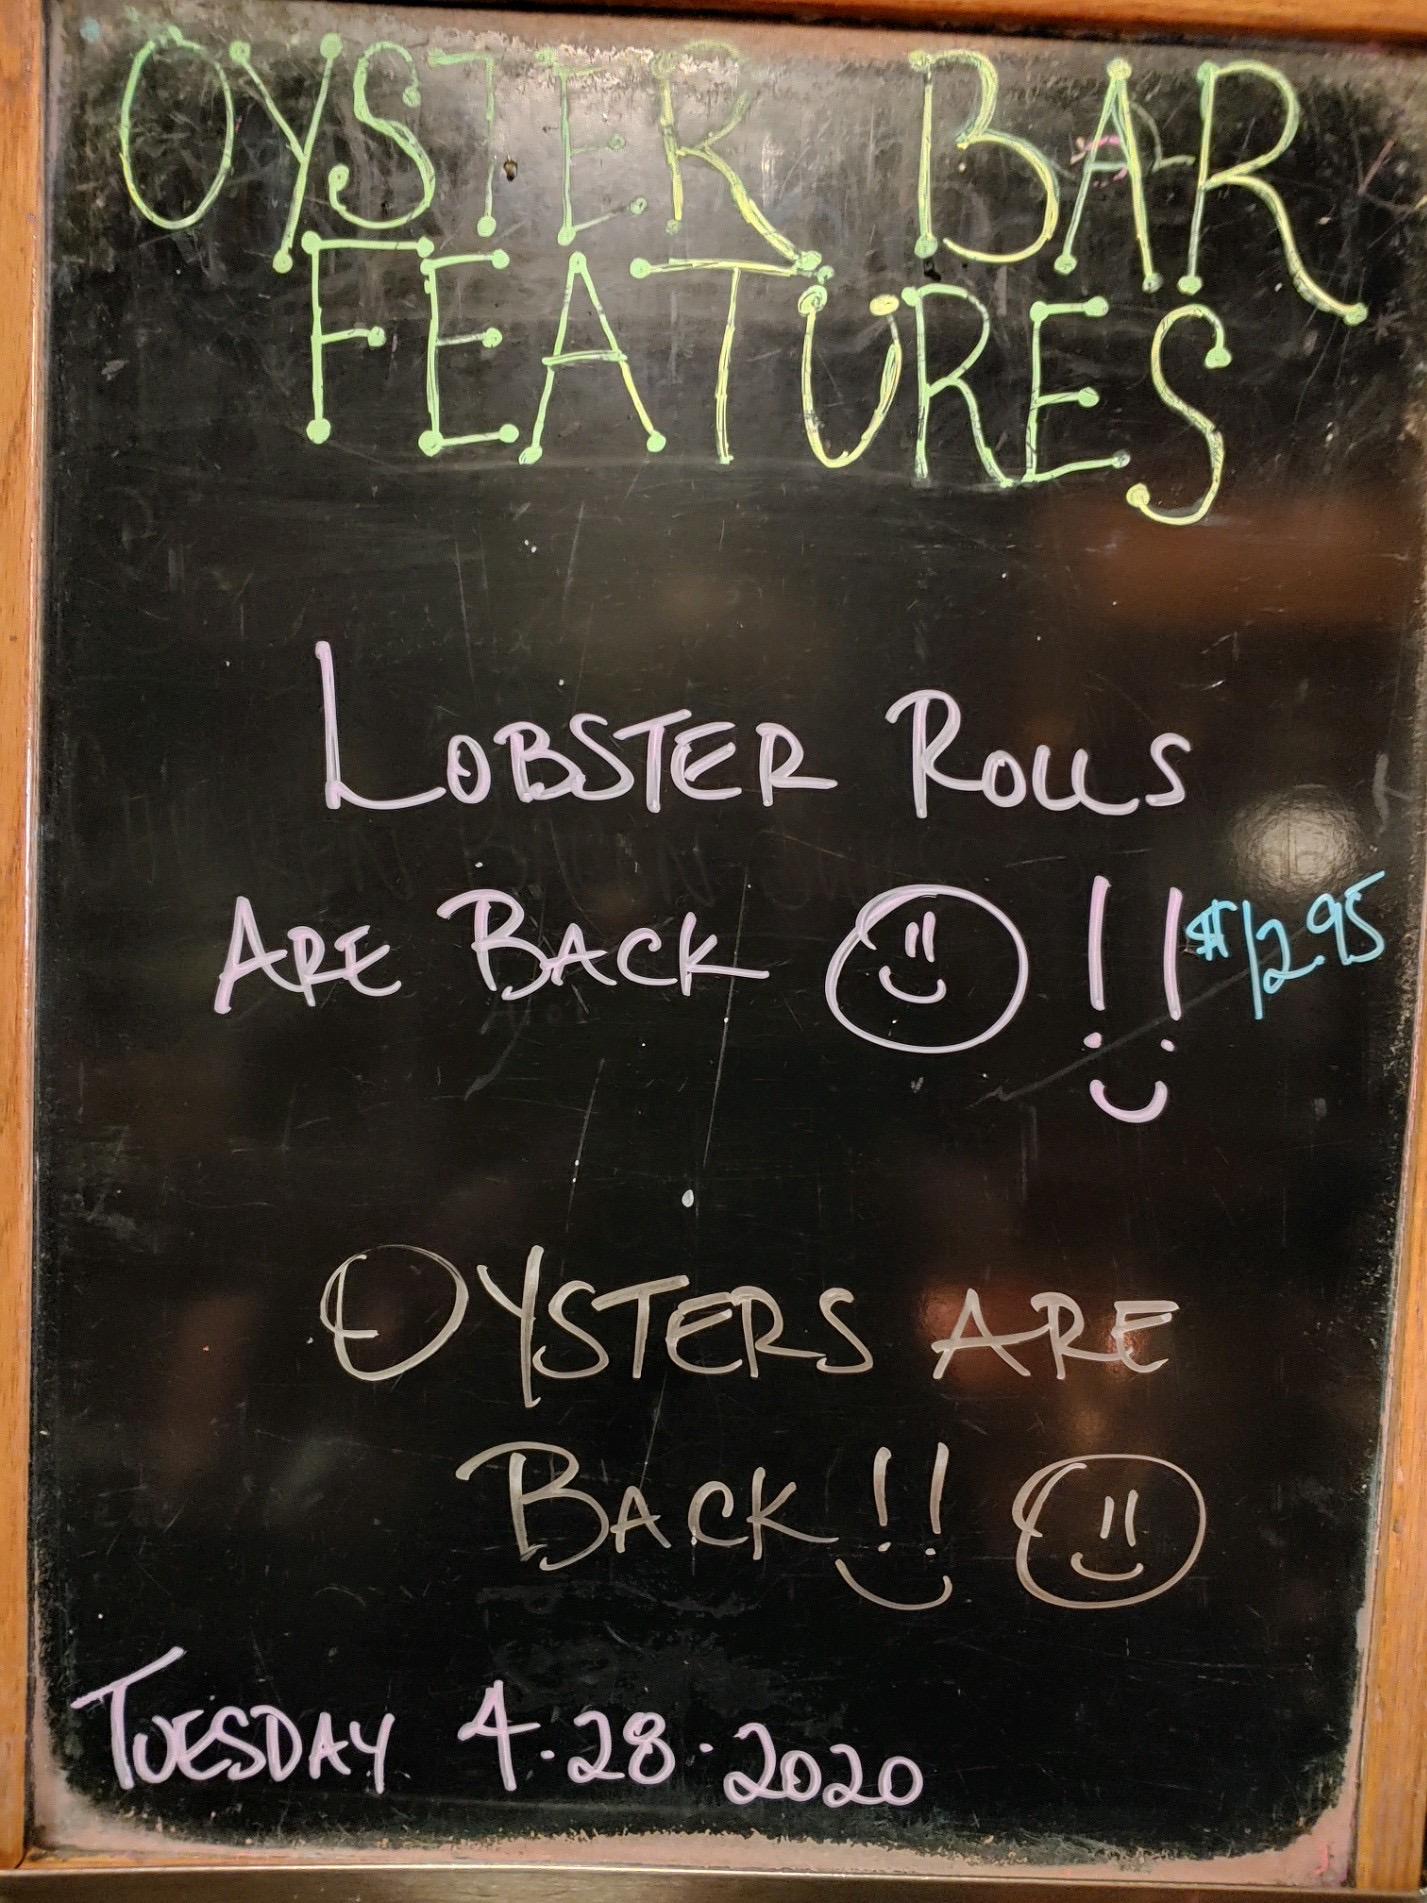 OYSTER BAR
FEATURES
LOBSTER ROLLS
ARE BACK !! $12.95
OYSTERS ARE
BACK!!
TUESDAY 4.28.2020